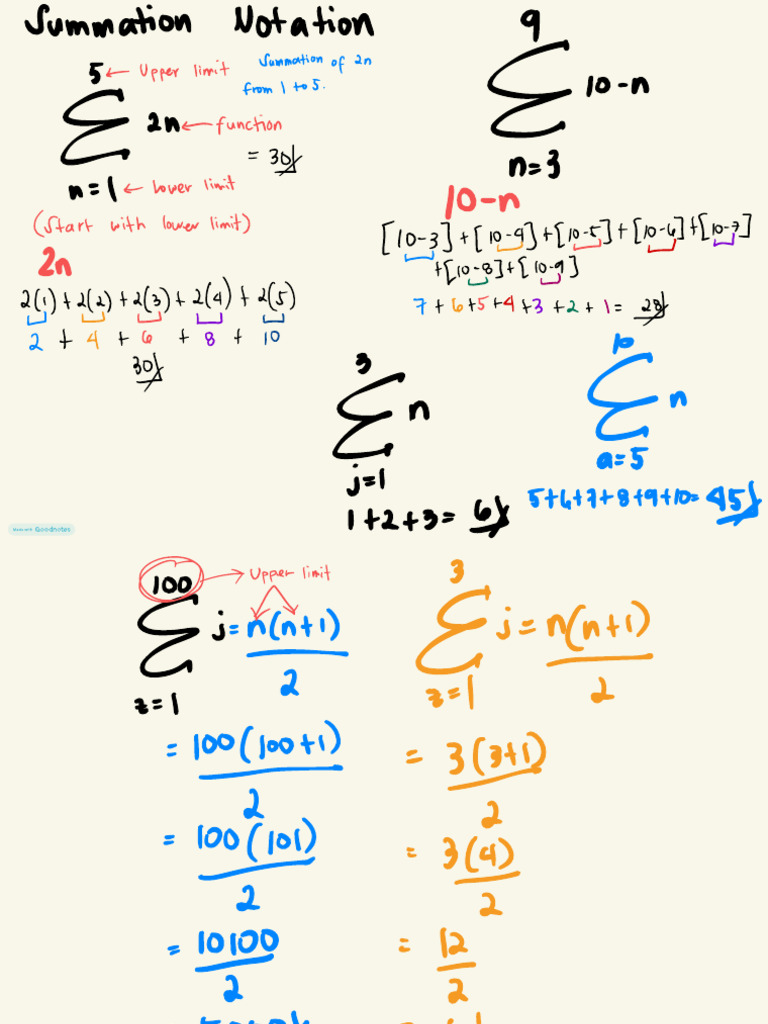 Summation Notation
5 ← Upper limit
Summation of 2n
from 1 to 5.
Σ 2n ← function
= 30
n = 1 ← Lower limit
(Start with lower limit)
2n
2(1) + 2(2) + 2(3) + 2(4) + 2(5)
2 + 4 + 6 + 8 + 10
30
9
Σ 10-n
n=3
10-n
[10-3] + [10-4] + [10-5] + [10-6] + [10-7]
+ [10-8] + [10-9]
7 + 6 + 5 + 4 + 3 + 2 + 1 = 28
3
Σ n
j=1
1+2+3= 6
10
Σ n
a=5
5+6+7+8+9+10= 45
Made with Goodnotes
100 → Upper limit
Σ j = n(n+1)
2
z=1
= 100(100+1)
2
= 100(101)
2
= 10100
2
3
Σ j = n(n+1)
2
z=1
= 3(3+1)
2
= 3(4)
2
= 12
2